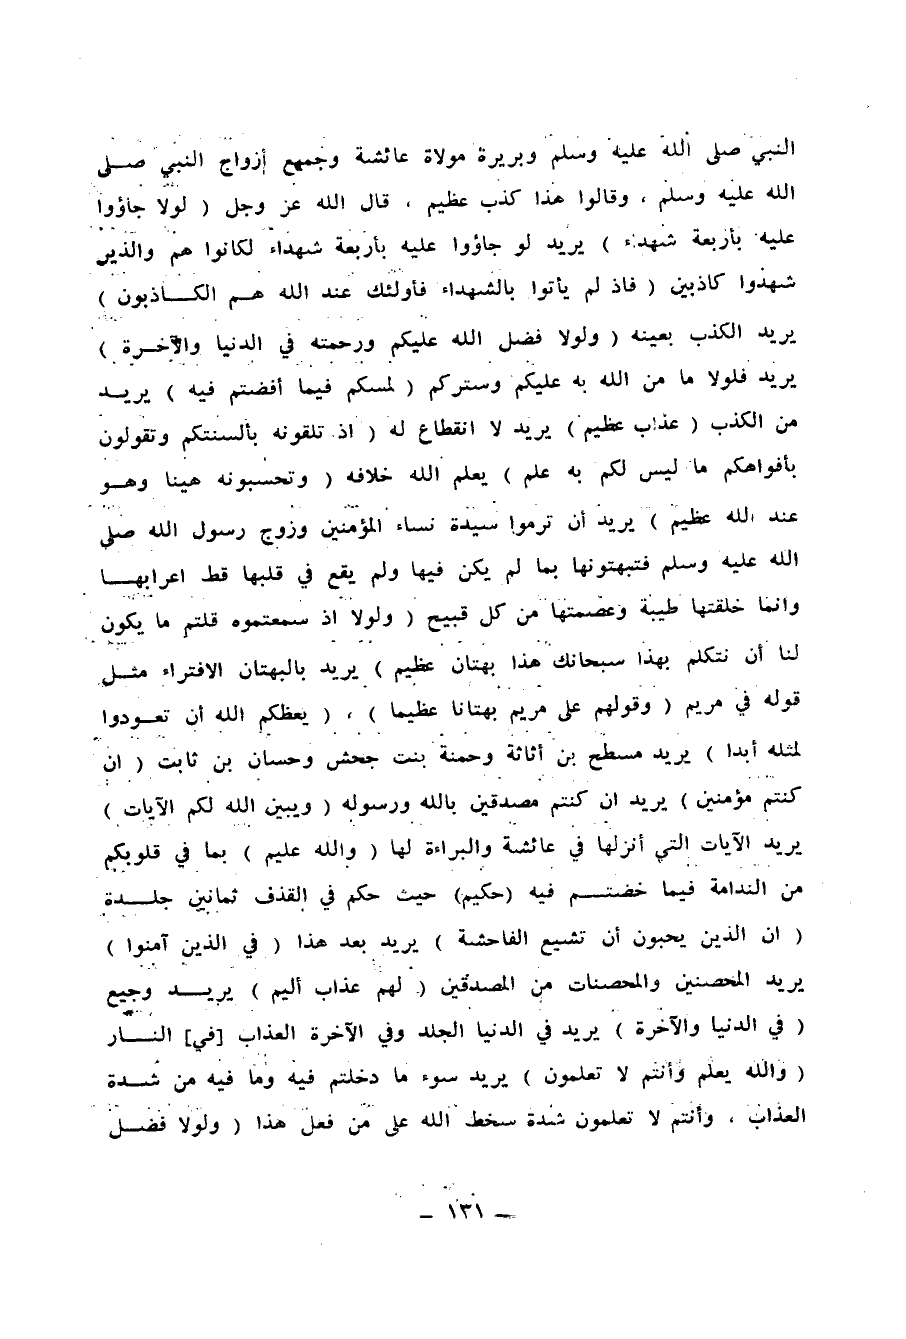 النبي صلى الله عليه وسلم وبريرة مولاة عائشة وجميع إزواج النبي صلى
الله عليه وسلم ، وقالوا هذا كذب عظيم ، قال الله عز وجل ( لولا جاؤوا
عليه بأربعة شهداء ) يريد لو جاؤوا عليه بأربعة شهداء لكانوا هم والذين
شهدوا كاذبين ( فاذ لم يأتوا بالشهداء فأولئك عند الله هم الكاذبون )
يريد الكذب بعينه ( ولولا فضل الله عليكم ورحمته في الدنيا والآخرة )
يريد فلولا ما من الله به عليكم وستركم ( لمسكم فيما أفضتم فيه ) يريد
من الكذب ( عذاب عظيم ) يريد لا انقطاع له ( اذ تلقونه بألسنتكم وتقولون
بأفواهكم ما ليس لكم به علم ) يعلم الله خلافه ( وتحسبونه هينا وهو
عند الله عظيم ) يريد أن ترموا سيدة نساء المؤمنين وزوج رسول الله صلى
الله عليه وسلم فتبهتونها بما لم يكن فيها ولم يقع في قلبها قط اعرابها
وانما خلقتها طيبة وعصمتها من كل قبيح ( ولولا اذ سمعتموه قلتم ما يكون
لنا أن نتكلم بهذا سبحانك هذا بهتان عظيم ) يريد بالبهتان الافتراء مثل
قوله في مريم ( وقولهم على مريم بهتانا عظيما ) ، ( يعظكم الله أن تعودوا
لمثله أبدا ) يريد مسطح بن أثاثة وحمنة بنت جحش وحسان بن ثابت ( ان
كنتم مؤمنين ) يريد ان كنتم مصدقين بالله ورسوله ( ويبين الله لكم الآيات )
يريد الآيات التي أنزلها في عائشة والبراءة لها ( والله عليم ) بما في قلوبكم
من الندامة فيما خضتم فيه (حكيم) حيث حكم في القذف ثمانين جلدة
( ان الذين يحبون أن تشيع الفاحشة ) يريد بعد هذا ( في الذين آمنوا )
يريد المحصنين والمحصنات من المصدقين ( لهم عذاب أليم ) يريد وجيع
( في الدنيا والآخرة ) يريد في الدنيا الجلد وفي الآخرة العذاب [في] النار
( والله يعلم وأنتم لا تعلمون ) يريد سوء ما دخلتم فيه وما فيه من شدة
العذاب ، وأنتم لا تعلمون شدة سخط الله على من فعل هذا ( ولولا فضل
– ١٣١ –